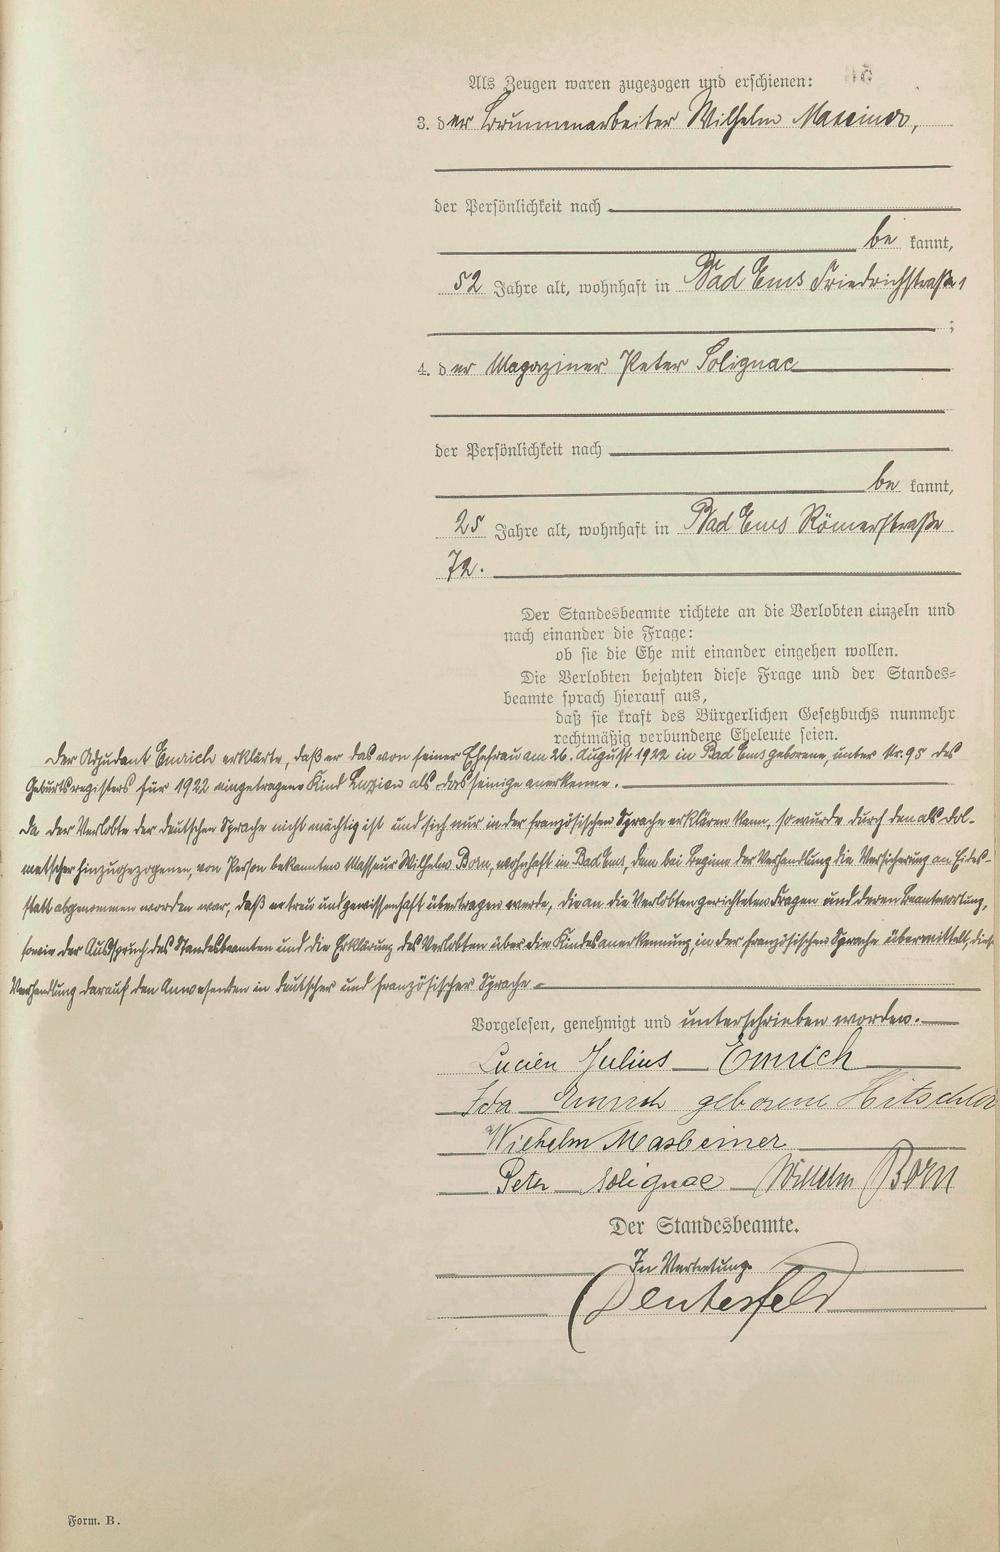 Als Zeugen waren zugezogen und erschienen:
3. der Brunnenarbeiter Wilhelm
der Persönlichkeit nach
be kannt,
52 Jahre alt, wohnhaft in Bad Ems Friedrichstraße 1
;
4. der Magaziner Peter Solignac
der Persönlichkeit nach
be kannt,
25 Jahre alt, wohnhaft in Bad Ems Römerstraße
72.
Der Standesbeamte richtete an die Verlobten einzeln und
nach einander die Frage:
ob sie die Ehe mit einander eingehen wollen.
Die Verlobten bejahten diese Frage und der Standes-
beamte sprach hierauf aus,
daß sie kraft des Bürgerlichen Gesetzbuchs nunmehr
rechtmäßig verbundene Eheleute seien.
Der Adjudant Emrich erklärte, daß er das von seiner Ehefrau am 26. August 1922 in Bad Ems geborene, unter Nr. 95 des
Geburtsregisters für 1922 eingetragene Kind Luzien als das seinige anerkenne.
Da der Verlobte der deutschen Sprache nicht mächtig ist und sich nur in der französischen Sprache erklären kann, so wurde durch den als Dol-
metscher hinzugezogenen, von Person bekannten Masseur Wilhelm Born, wohnhaft in Bad Ems, dem bei Beginn der Verhandlung die Versicherung an Eides-
statt abgenommen worden war, daß er treu und gewissenhaft übertragen werde, die an die Verlobten gerichteten Fragen und deren Beantwortung,
sowie der Ausspruch des Standesbeamten und die Erklärung des Verlobten über die Kindesanerkennung, in der französischen Sprache übermittelt, diese
Verhandlung darauf den Anwesenden in deutscher und französischer Sprache
Vorgelesen, genehmigt und unterschrieben worden.
Lucien Julius Emrich
Ida Emrich geborene Hitschler
Wilhelm Masbeiner
Peter Solignac Wilhelm Born
Der Standesbeamte.
In Vertretung
Form. B.